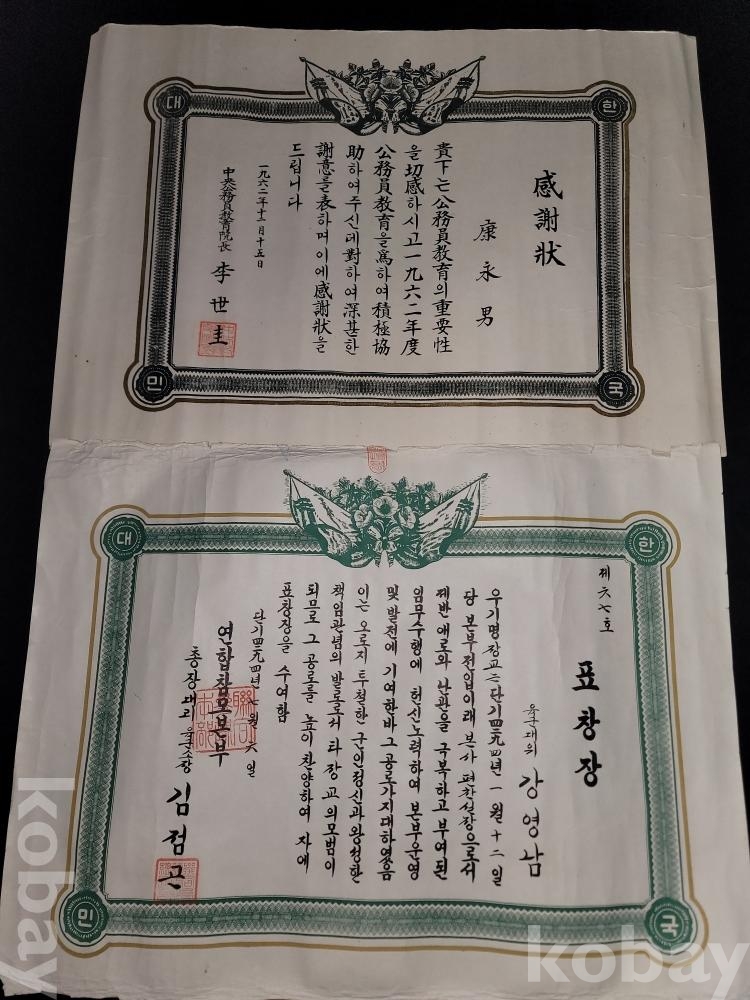 kobay
한
대
국
민
感謝狀
康永男
貴下는公務員敎育의重要性
을切感하시고一九六二年度
公務員敎育을爲하여積極協
助하여주신데對하여深甚한
謝意를表하며이에感謝狀을
드립니다
一九六二年十二月十五日
中央公務員敎育院長 李世圭
한
대
국
민
제六七호
표창장
육군대위 강영남
우기명장교는단기四二九四년一월十二일
당본부전입이래본사편찬실장으로서
제반애로와난관을극복하고부여된
임무수행에헌신노력하여본부운영
및발전에기여한바그공로가지대하였음
이는오로지투철한군인정신과왕성한
책임관념의발로로서타장교의모범이
되므로그공로를높이찬양하여자에
표창장을수여함
단기四二九四년七월六일
연합참모본부
총장대리육군소장 김점곤
kobay
kobay